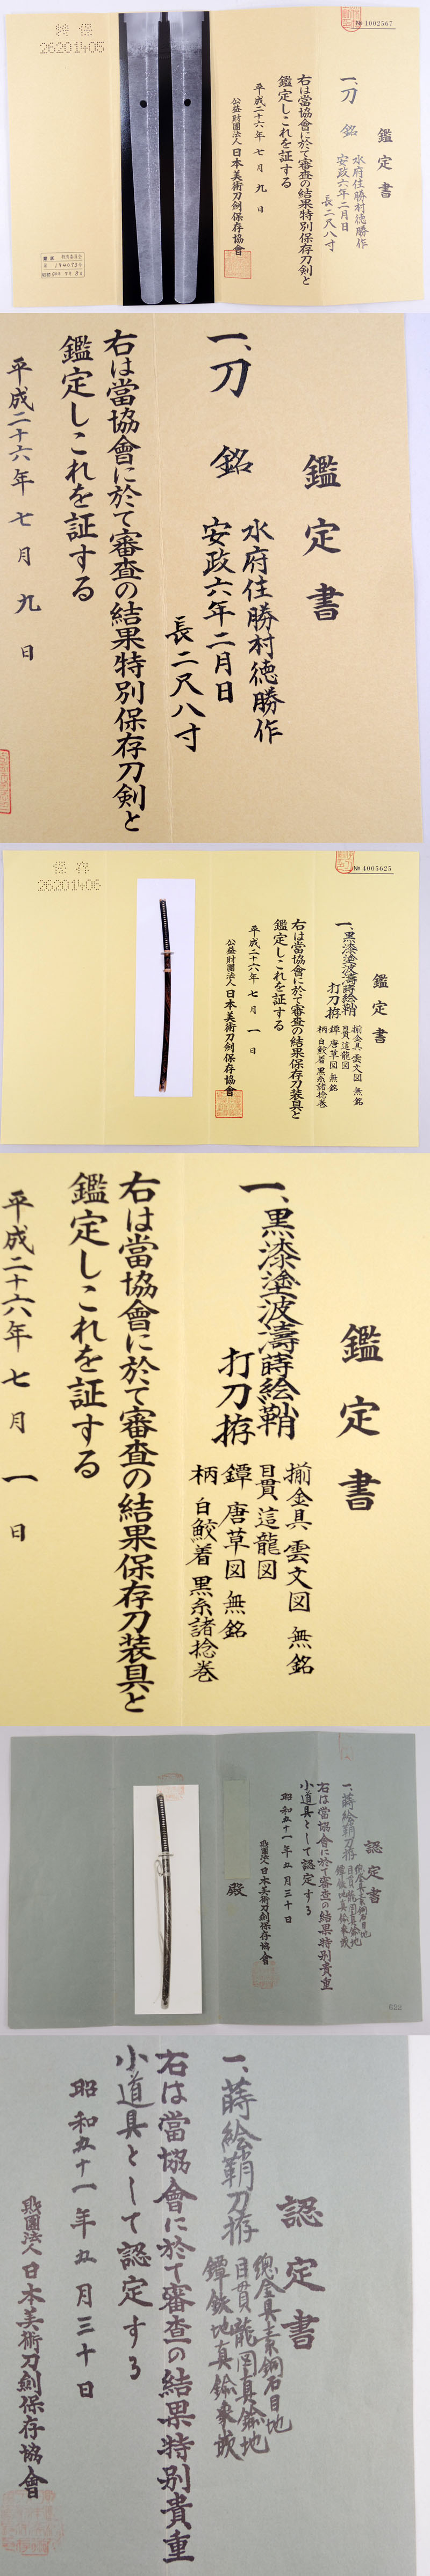 № 1002567
鑑定書
一、刀 銘 水府住勝村徳勝作
安政六年二月日
長二尺八寸
右は當協會に於て審査の結果特別保存刀剣と
鑑定しこれを証する
平成二十六年七月九日
公益財團法人日本美術刀劍保存協會
特保
26201405
鑑定書
一、刀 銘 水府住勝村徳勝作
安政六年二月日
長二尺八寸
右は當協會に於て審査の結果特別保存刀剣と
鑑定しこれを証する
平成二十六年七月九日
№ 4005625
鑑定書
一、黒漆塗波濤蒔絵鞘
打刀拵
揃金具 雲文図 無銘
目貫 這龍図
鐔 唐草図 無銘
柄 白鮫着 黒糸諸捻巻
右は當協會に於て審査の結果保存刀装具と
鑑定しこれを証する
平成二十六年七月一日
公益財團法人日本美術刀劍保存協會
保存
26201406
鑑定書
一、黒漆塗波濤蒔絵鞘
打刀拵
揃金具 雲文図 無銘
目貫 這龍図
鐔 唐草図 無銘
柄 白鮫着 黒糸諸捻巻
右は當協會に於て審査の結果保存刀装具と
鑑定しこれを証する
平成二十六年七月一日
認定書
一、蒔絵鞘刀拵
總金具素銅石目地
目貫龍図真鍮地
鐔鉄地真鍮象嵌
右は當協會に於て審査の結果特別貴重
小道具として認定する
昭和五十一年五月三十日
財團法人日本美術刀劍保存協會
殿
622
認定書
一、蒔絵鞘刀拵
總金具素銅石目地
目貫龍図真鍮地
鐔鉄地真鍮象嵌
右は當協會に於て審査の結果特別貴重
小道具として認定する
昭和五十一年五月三十日
財團法人日本美術刀劍保存協會